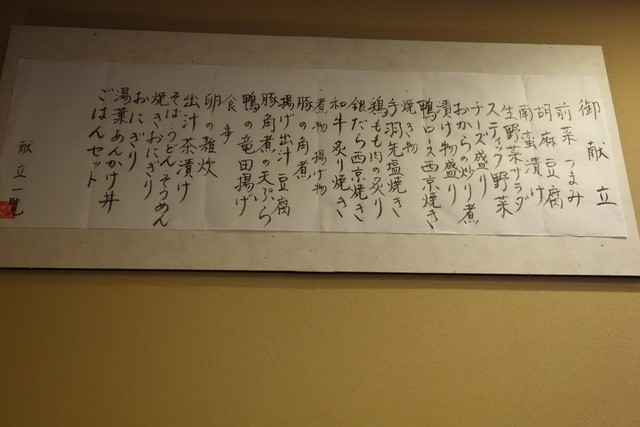 御献立
前菜 つまみ
胡麻豆腐
南蛮漬け
生野菜サラダ
スティック野菜
チーズ盛り
おからの炒り煮
漬け物盛り
鴨ロース西京焼き
焼き物
手羽先塩焼き
鶏もも肉の炙り
銀だら西京焼き
和牛炙り焼き
煮物 揚げ物
豚の角煮
揚げ出汁豆腐
豚角煮の天ぷら
鴨の竜田揚げ
食事
卵の雑炊
出汁茶漬け
そば・うどん・そうめん
焼きおにぎり
おにぎり
湯葉あんかけ丼
ごはんセット
献立一覧